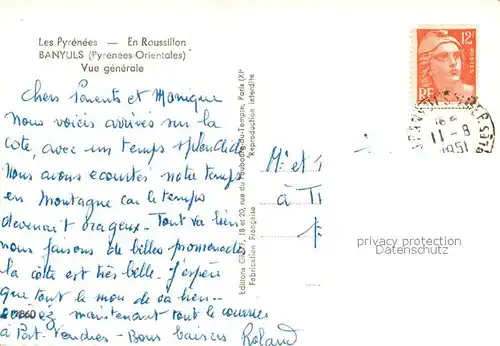 Les Pyrénées — En Roussillon
BANYULS (Pyrénées-Orientales)
Vue générale
Chers Parents et Monique
Nous voici arrivés sur la
Côte, avec un temps splendide
Nous avons écourté notre temps
en Montagne car le temps
devenait orageux. Tout va bien
nous faisons de belles promenades
la côte est très belle. J'espère
que tout le monde va bien
maintenant tout le courrier
à Port-Vendres - Bons baisers Roland
Editions 18 et 20, rue du Faubourg-du-Temple, Paris (XIe
Fabrication Française Reproduction interdite
12F
POSTES
RF
11-8
1951
Mr et
à
privacy protection
Datenschutz